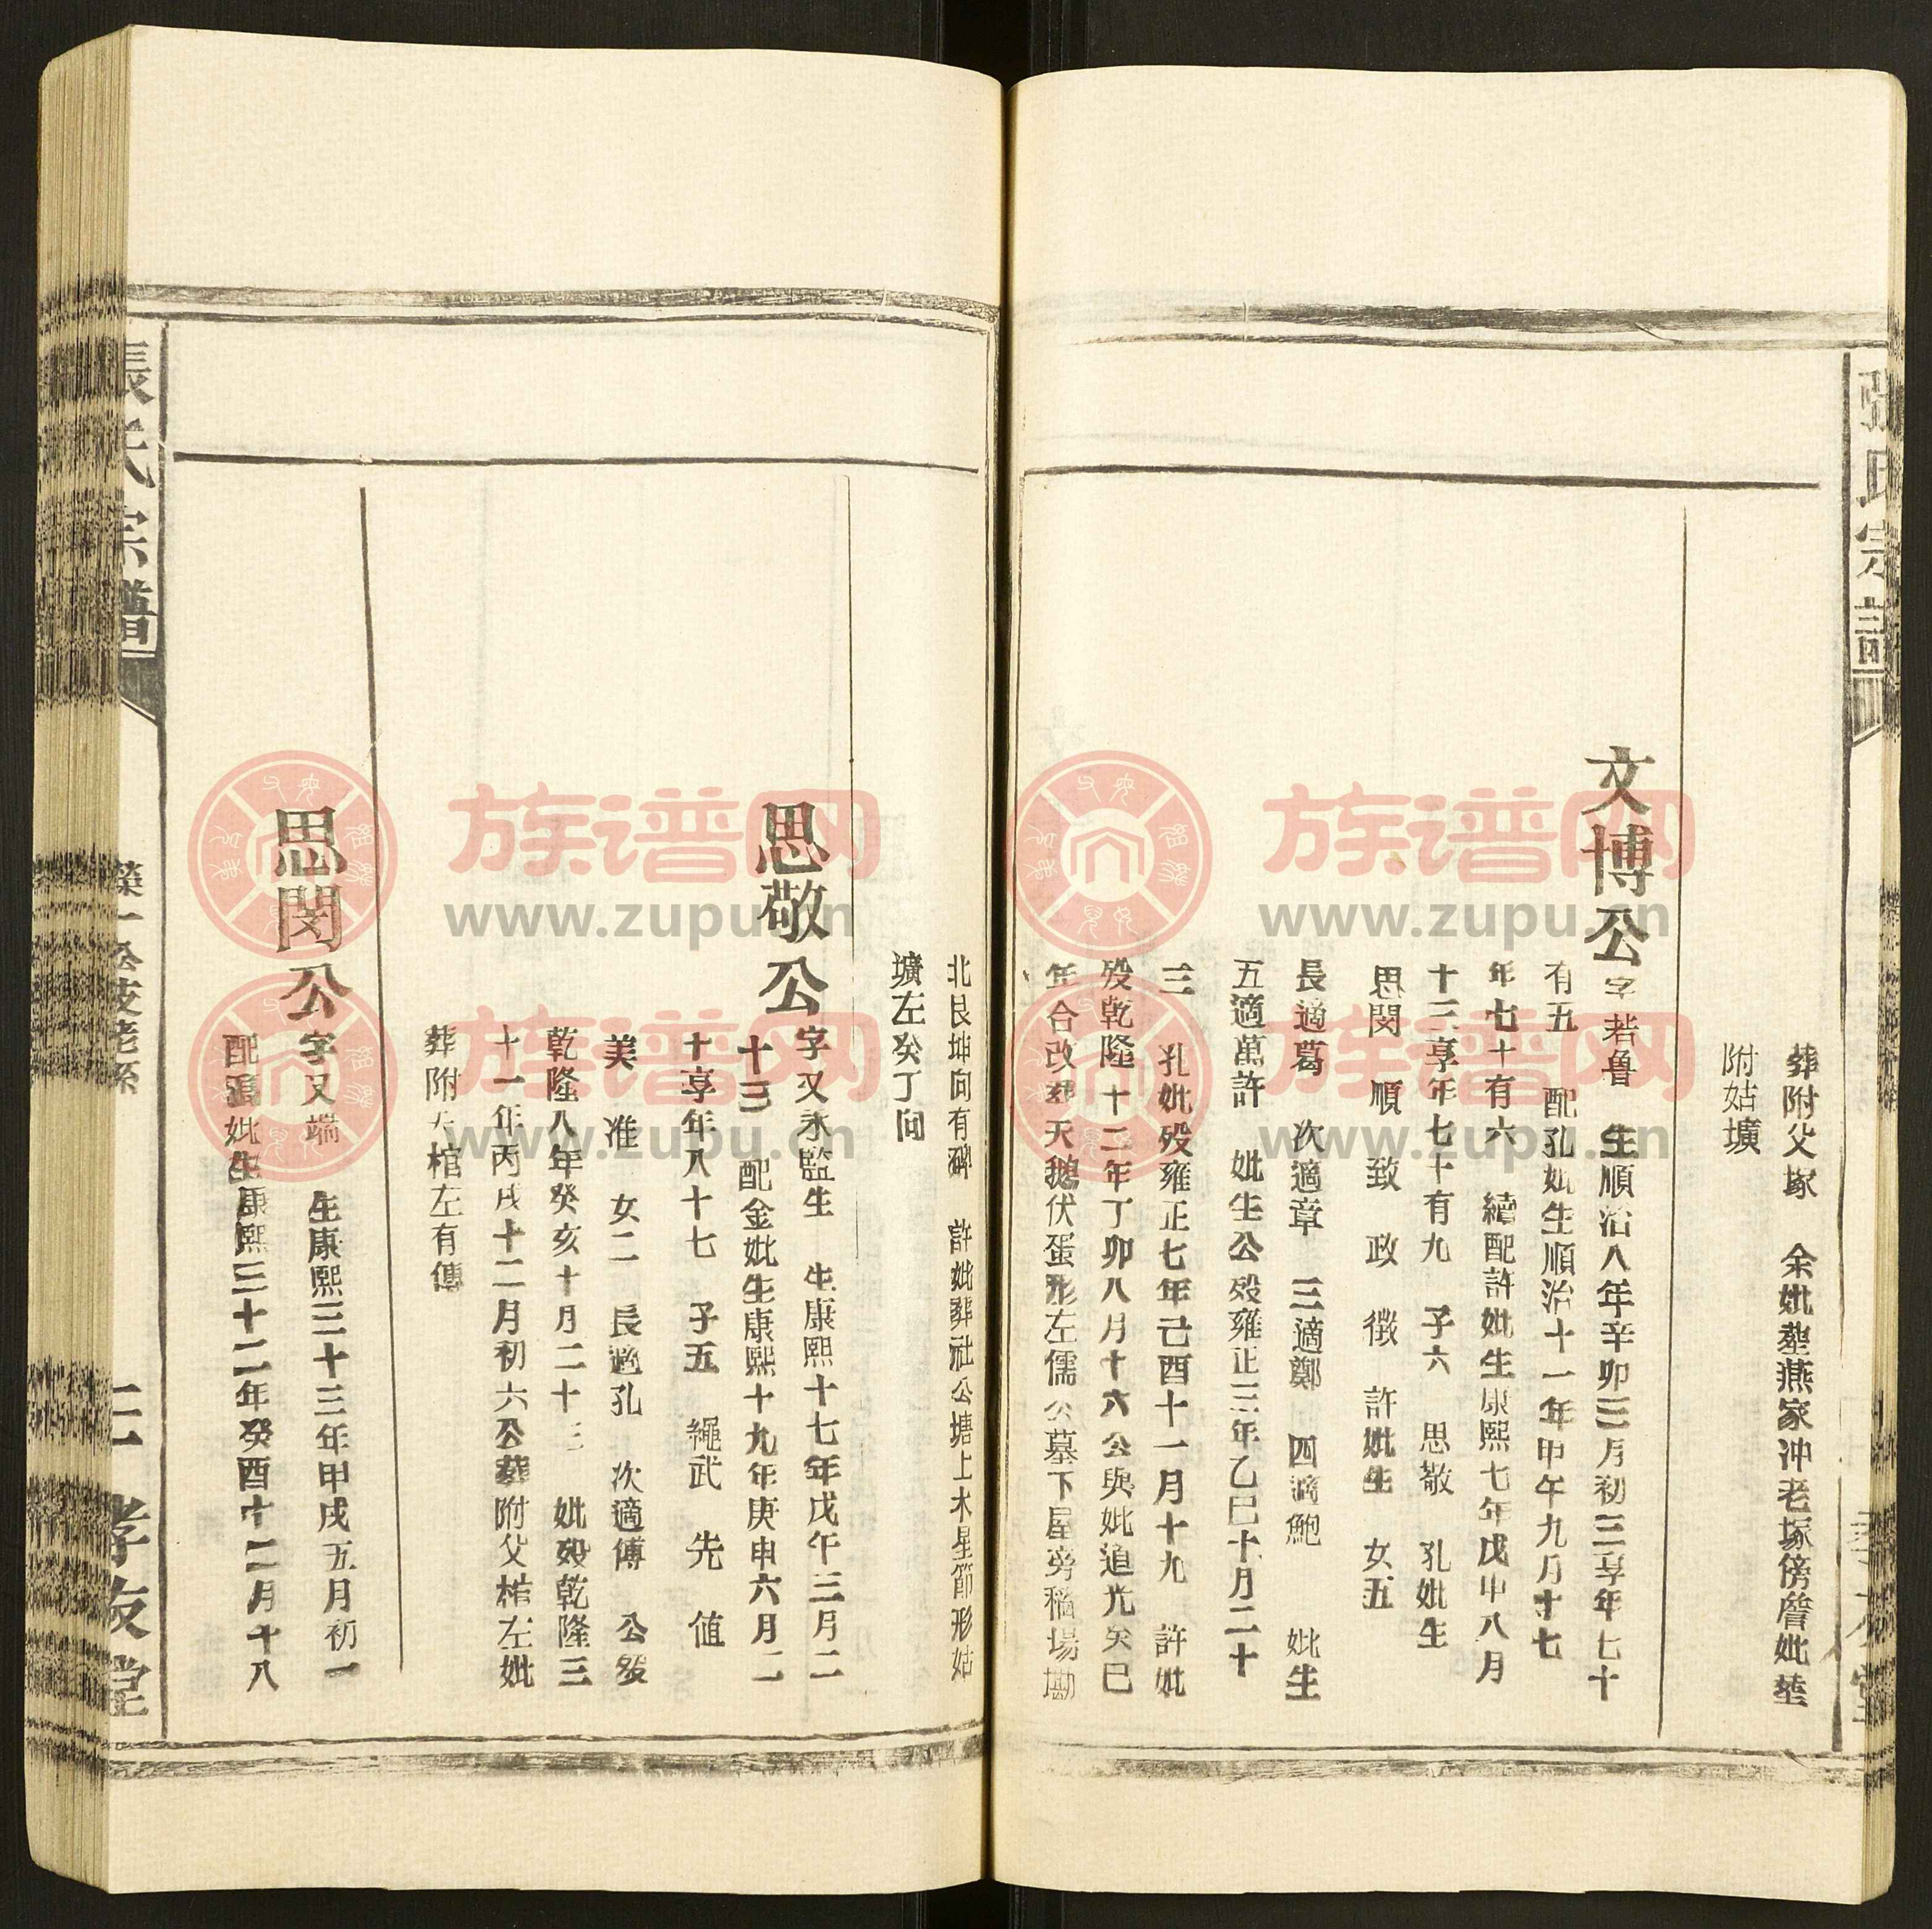 張氏宗譜
葬附父塚 余妣塟燕家冲老塚傍詹妣塟
附姑壙
文博公
字若魯 生順治八年辛卯三月初三享年七十
有五 配孔妣生順治十一年甲午九月十七
年七十有六 續配許妣生康熙七年戊申八月
十三享年七十有九 子六 思敬 孔妣生
思閔 順 致 政 徵 許妣生 女五
長適葛 次適章 三適鄭 四適鮑 妣生
五適萬許 妣生公歿雍正三年乙巳十月二十
三 孔妣歿雍正七年己酉十一月十九 許妣
歿乾隆十二年丁卯八月十六公與妣道光癸巳
年合改葬天鵝伏蛋形左儒公墓下屋旁稻場磡
北艮坤向有碑 許妣葬社公塘上木星節形姑
壙左癸丁向
思敬公
字又永監生 生康熙十七年戊午三月二
十三 配金妣生康熙十九年庚申六月二
十享年八十七 子五 繩武 先 值
美 准 女二 長適孔 次適傅 公歿
乾隆八年癸亥十月二十三 妣歿乾隆三
十一年丙戌十二月初六公葬附父棺左妣
葬附夫棺左有傳
思閔公
字又端 生康熙三十三年甲戌五月初一
配 妣生康熙三十二年癸酉十二月十八
張氏宗譜
榮一公支老系
孝友堂
族谱网
www.zupu.cn
族谱网
www.zupu.cn
族谱网
www.zupu.cn
族谱网
www.zupu.cn